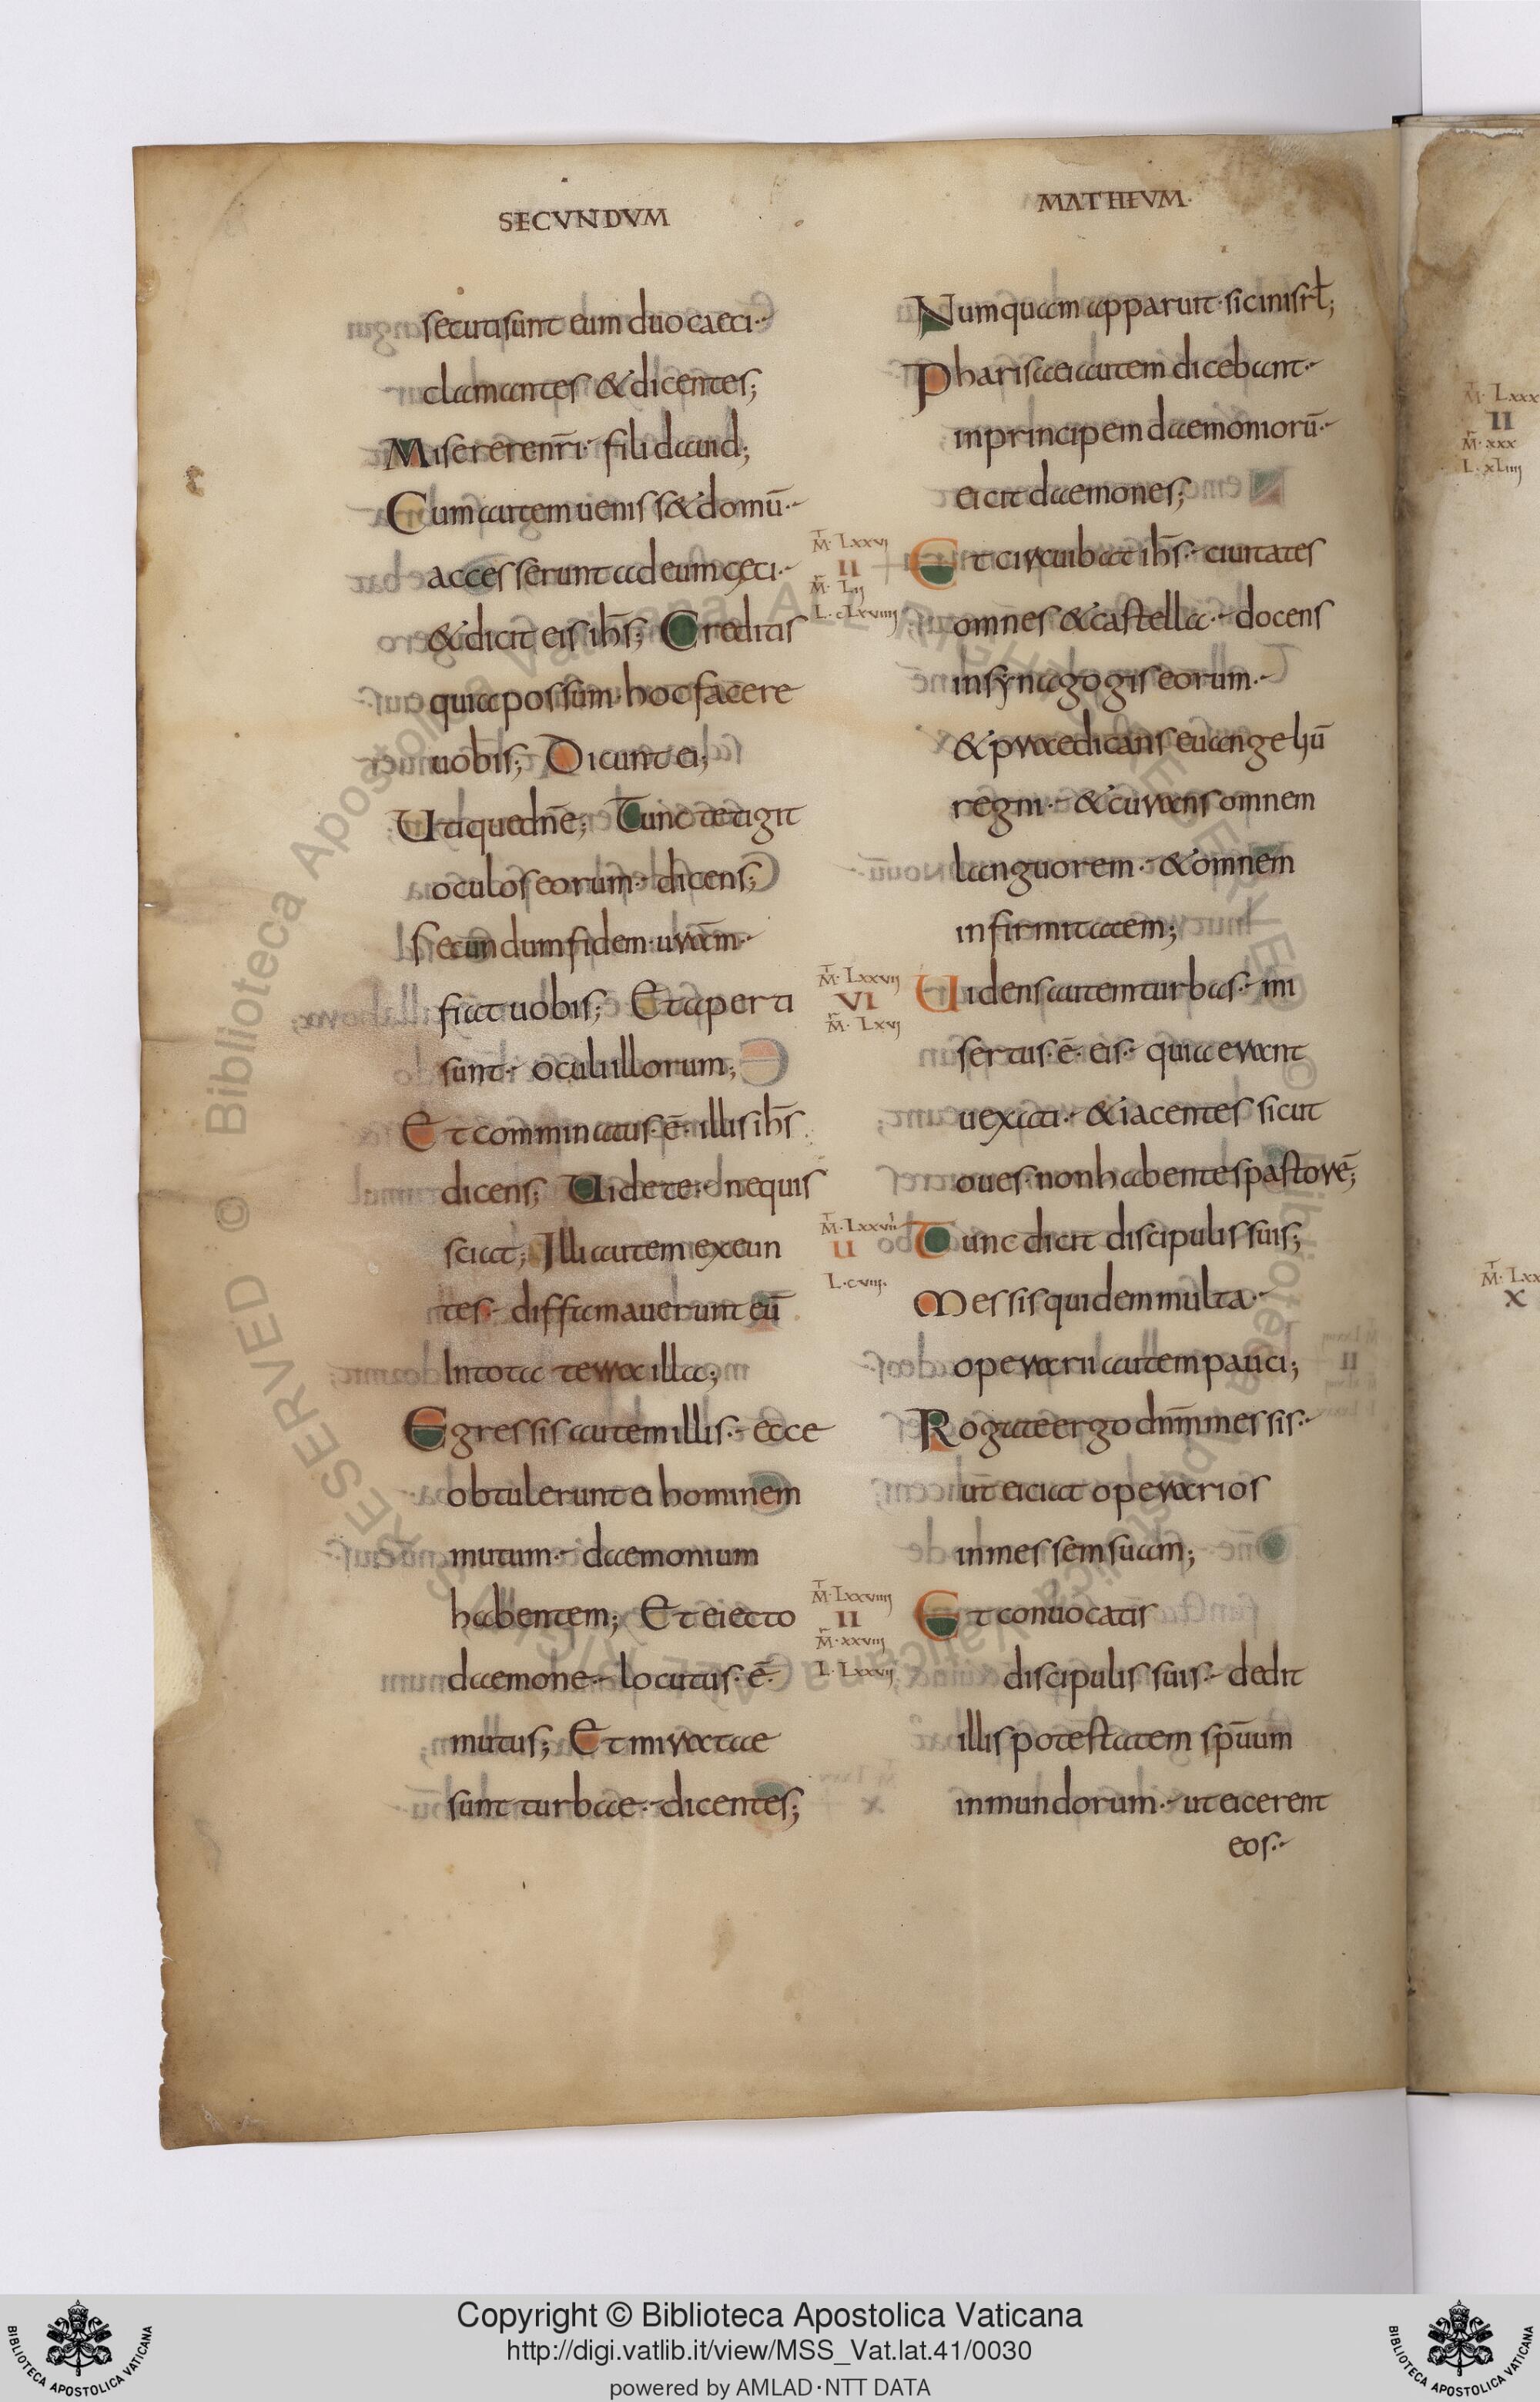 SECVNDVM
secuti sunt eum duo caeci·
clamantes & dicentes;
Miserere nr̄i· fili dauid;
Cum autem ueniss& domū·
accesserunt ad eum cęci·
& dicit eis ih̄s; Creditis
quia possum· hoc facere
uobis; Dicunt ei;
Utique dn̄e; Tunc tetigit
oculos eorum· dicens;
Secundum fidem· ur̄am·
fiat uobis; Et aperti
sunt· oculi illorum;
Et comminatus· ē· illis ih̄s
dicens; Uidete· nequis
sciat; Illi autem exeun
tes· diffamauerunt eū
In tota terra illa;
Egressis autem illis· ecce
obtulerunt ei hominem
mutum· daemonium
habentem; Et eiecto
daemone· locutus· ē·
mutus; Et miratae
sunt turbae· dicentes;
MATHEVM·
Numquam apparuit· sic in isrł;
Pharisaei autem dicebant·
in principem daemoniorū·
eicit daemones;
M· Lxxvi
II
M· Lii
L· cLxviiii
Et circuibat ih̄s· ciuitates
omnes & castella· docens
in synagogis eorum·
& praedicans euangeliū
regni· & curans omnem
languorem· & omnem
infirmitatem;
M· Lxxvii
VI
M· Lxvi
Uidens autem turbas· mi
sertus· ē· eis· quia erant
uexati· & iacentes sicut
oues· non habentes pastorē;
M· Lxxviii
II
L· cviii·
Tunc dicit discipulis suis;
Messis quidem multa·
operarii autem pauci;
Rogate ergo dnm̄ messis·
ut eiciat operarios
in messem suam;
M· Lxxviiii
II
M· xxviiii
L· Lxxvii
Et conuocatis
discipulis suis· dedit
illis potestatem sp̄uum
inmundorum· ut eicerent
eos·
M· Lxxx
II
M· xxx
L· xLiiii
M· Lxx
X
Copyright © Biblioteca Apostolica Vaticana
http://digi.vatlib.it/view/MSS_Vat.lat.41/0030
powered by AMLAD·NTT DATA
BIBLIOTECA APOSTOLICA VATICANA
BIBLIOTECA APOSTOLICA VATICANA